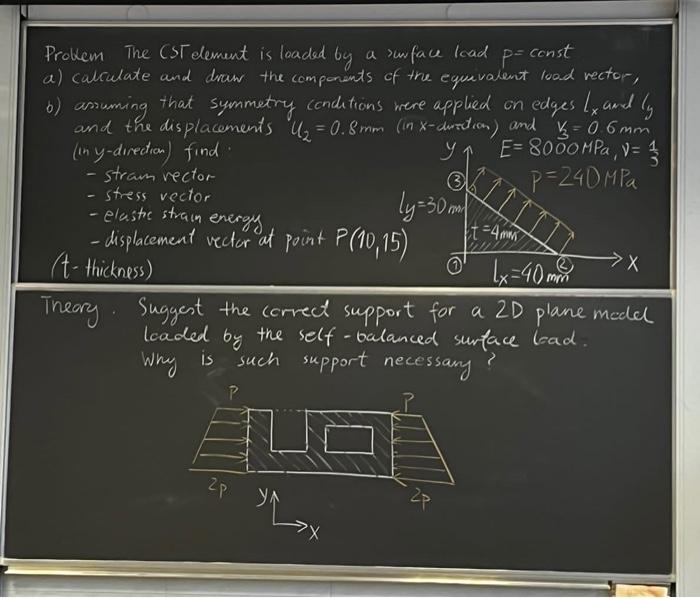 Problem The CST element is loaded by a surface load p = const
a) calculate and draw the components of the equivalent load vector,
b) assuming that symmetry conditions were applied on edges lx and ly
and the displacements u2 = 0.8 mm (in x-direction) and v3 = 0.6 mm
(in y-direction) find:
y E = 8000 MPa, ν = 1/3
- strain vector
3 p = 240 MPa
- stress vector
ly = 30 mm
- elastic strain energy
t = 4 mm
- displacement vector at point P(10,15)
x
(t - thickness)
1 lx = 40 mm 2
Theory. Suggest the correct support for a 2D plane model
loaded by the self-balanced surface load.
Why is such support necessary?
P P
2p 2p
y
x